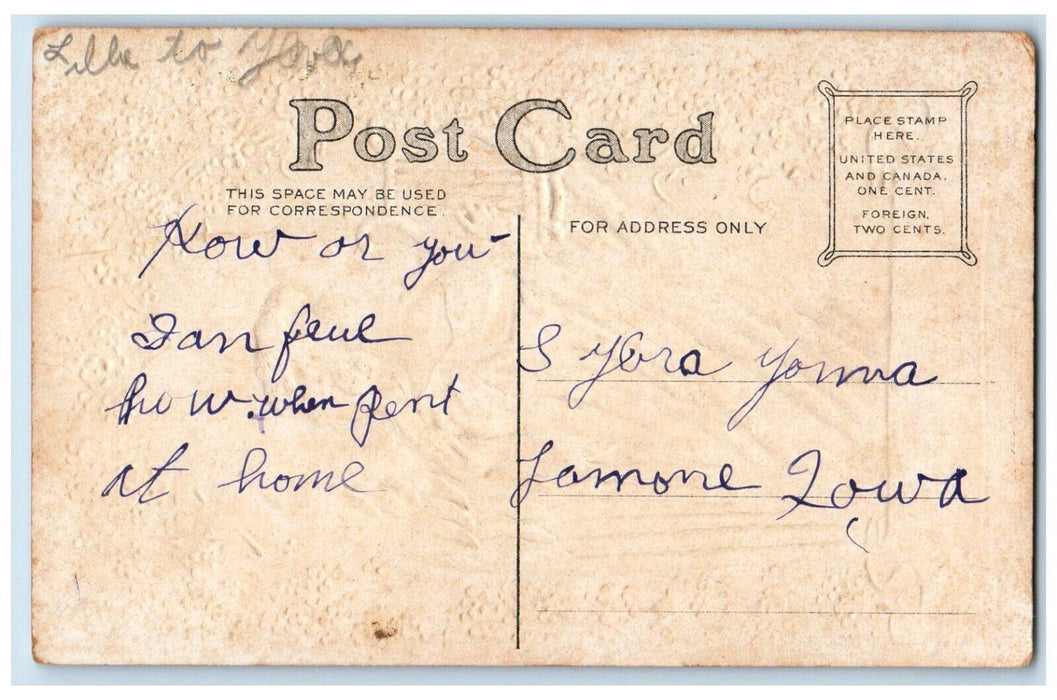 to
Post Card
PLACE STAMP
HERE.
UNITED STATES
AND CANADA,
ONE CENT.
FOREIGN,
TWO CENTS.
THIS SPACE MAY BE USED
FOR CORRESPONDENCE.
FOR ADDRESS ONLY
How or you
I an feul
how when pent
at home
S Ylora Yonna
Lamone Iowa